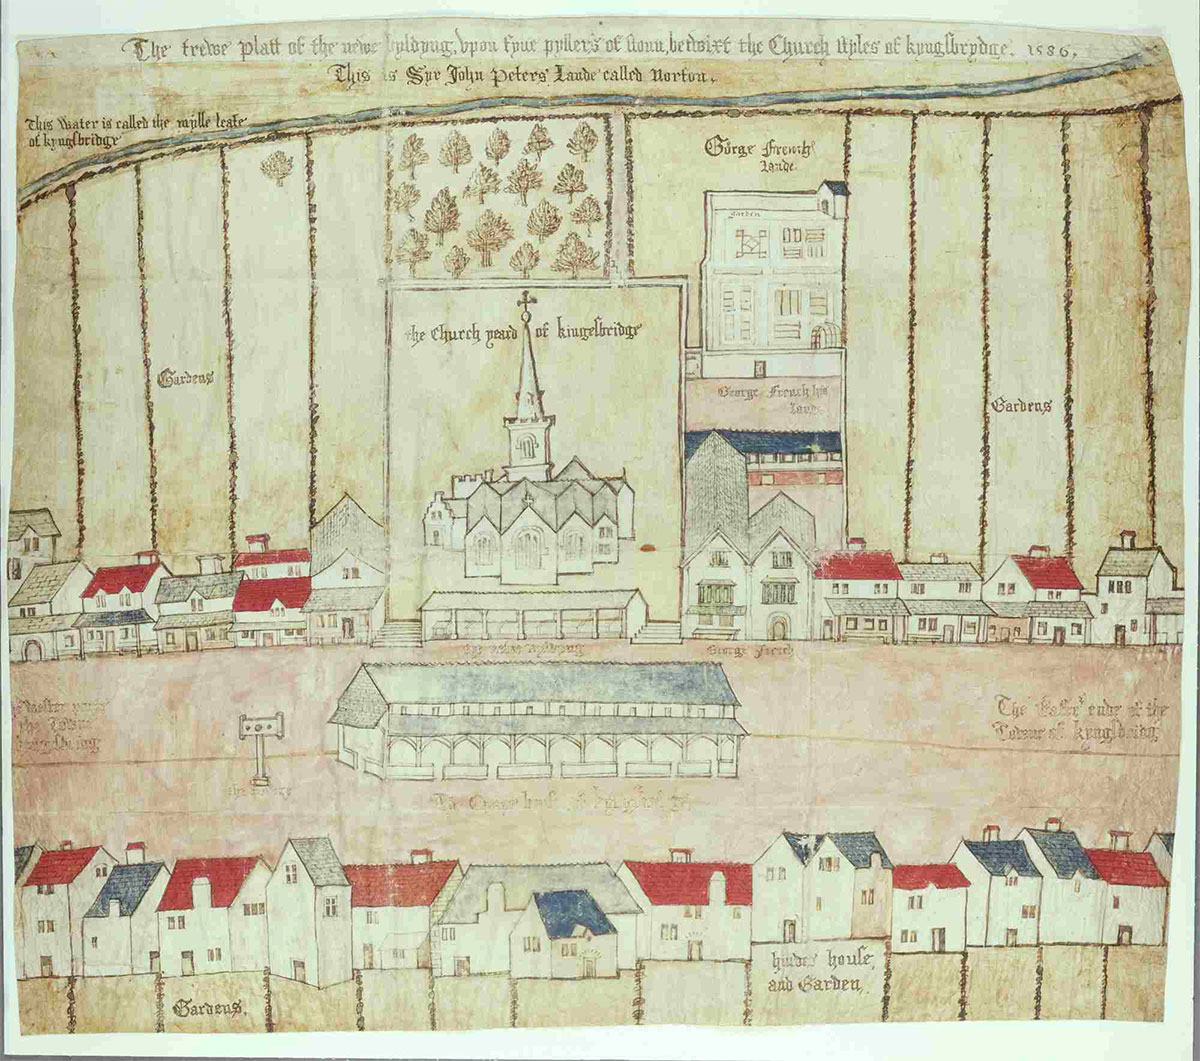 The trewe platt of the newe byldyng, vpon fyue pyllers of stonn, betwixt the Church styles of kyngsbrydge. 1586.
This is Syr John Peters Lande called Norton.
This Water is called the mylle leate
of kyngsbridge
Gorge French
Lande.
Garden
the Church yeard of kingesbridge
Gardens
George French his
Land
Gardens
the newe byldyng
George French
The ende of the
Towne of
the Towne
The house of
Gardens.
hinder house,
and Garden,